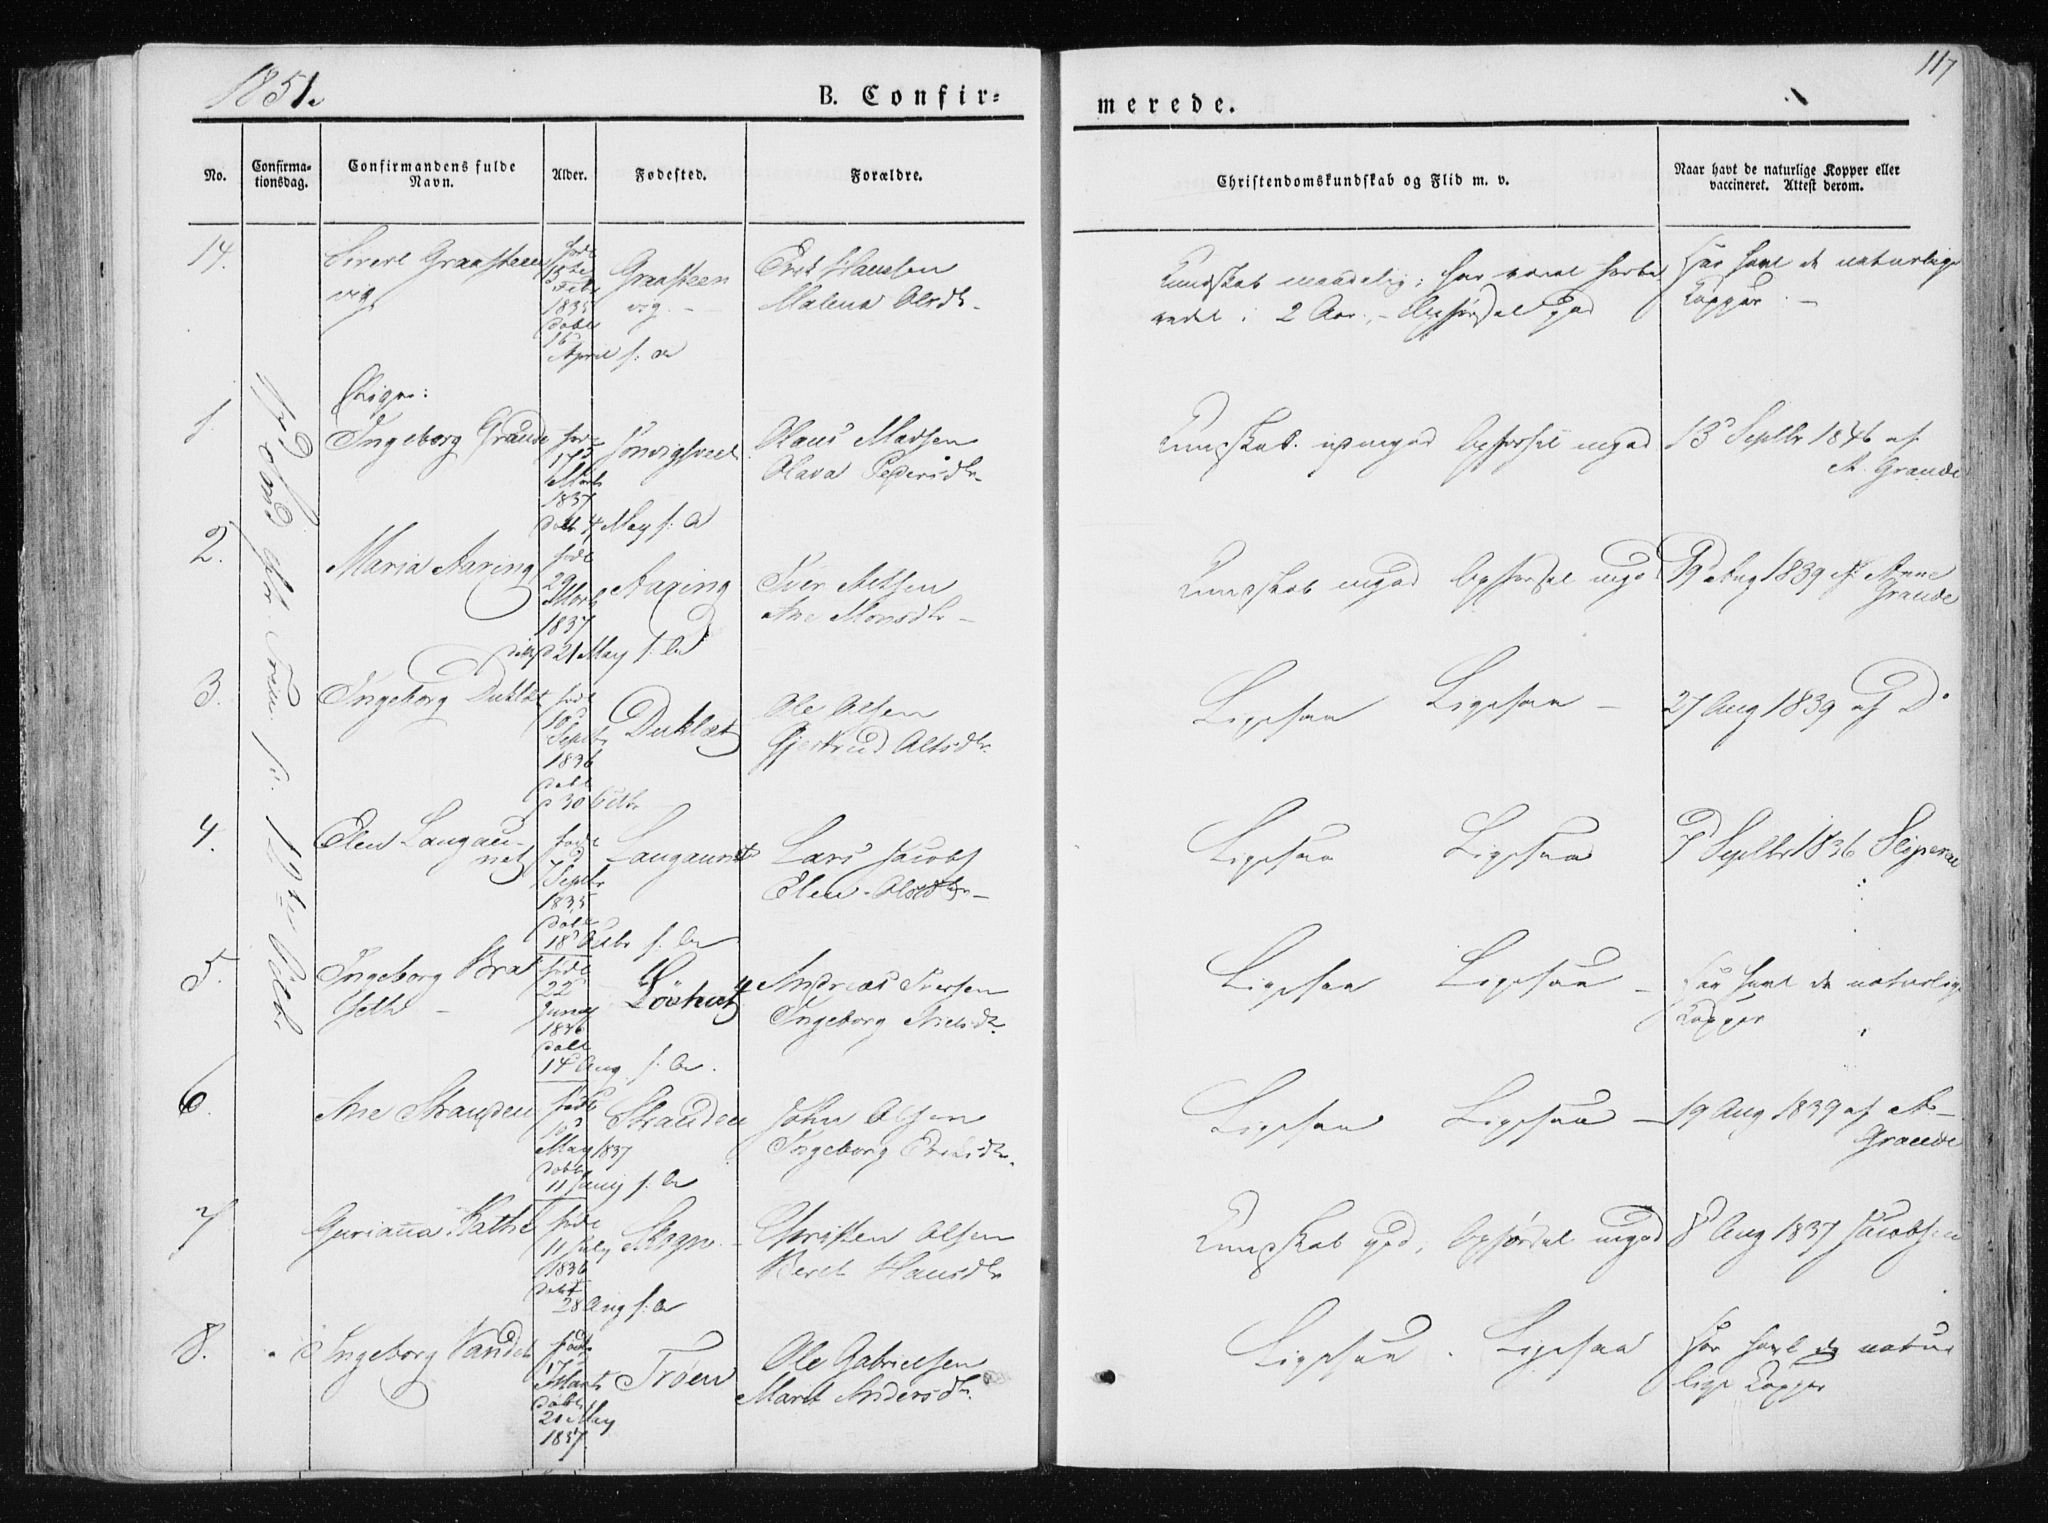 1851.
B. Confir=
merede.
117
No.
Confirma-
tionsdag.
Confirmandens fulde
Navn.
Alder.
Fødested.
Forældre.
Christendomskundskab og Flid m. v.
Naar havt de naturlige Kopper eller
vaccineret. Attest derom.
14.
Graasteen
vig
født
15de
Febr
1835
døbt
16
April s: a
Graasteen
vig. -
Hansen
Malena Olsdr.
Kundskab maadelig; har været forbe
redet i 2 Aar, - Opførsel god
Har havt de naturlige
Kopper. -
Piger:
1.
Ingeborg Grande
født
17
Marts
1837
døbt 4 May s: a
Olaus Madsen
Olava Pedersdr.
Kundskab mgod Opførsel mgod
13 Septbr 1846 af
A. Grande
2.
Maria Aaring
født
29
Marts
1837
døbt 21 May s: a
Aaring
Iver
Ane Monsdr -
Kundskab mgod Opførsel mgod
19 Aug 1839 af Anne
Grande
3.
Ingeborg Duklæt
født
10
Septbr
1836
døbt
30 Octbr
Duklæt
Ole Olsen
Gjertrud
Ligesaa Ligesaa -
27 Aug 1839 af Do
4.
Elen Langau-
net
født
7
Septbr
1835
døbt
18 Octbr s: a
Langaunet
Lars Jacobs
Elen Olsdtr -
Ligesaa Ligesaa
7 Septbr 1836
5.
Ingeborg Brat
seth -
født
22
Juny
døbt
14 Aug s: a.
Andreas Iversen
Ingeborg Nielsdr.
Ligesaa Ligesaa -
Har havt de naturlige
Kopper
6.
Ane Stranden
født
10
May 1837
døbt
11 Juny s: a
Stranden
John Olsen
Ingeborg
Ligesaa Ligesaa -
19 Aug 1839 af A-
Grande
7
Guriana Rathe
født
11 July
1836
døbt
28 Aug s: a
Christen Olsen
Beret Hansdr
Kundskab god, Opførsel mgod
8 Aug 1837 Jacobsen
8.
Ingeborg
født
17
Marts
døbt
21 May
1837
Trøen
Ole Gabrielsen
Maret Andersdr.
Ligesaa. Ligesaa
Har havt de natur
lige Kopper